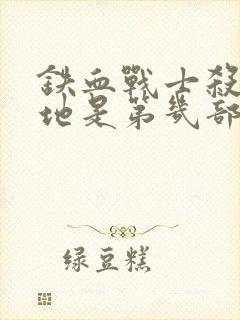 铁血戰士殺
地是第幾部
绿豆糕